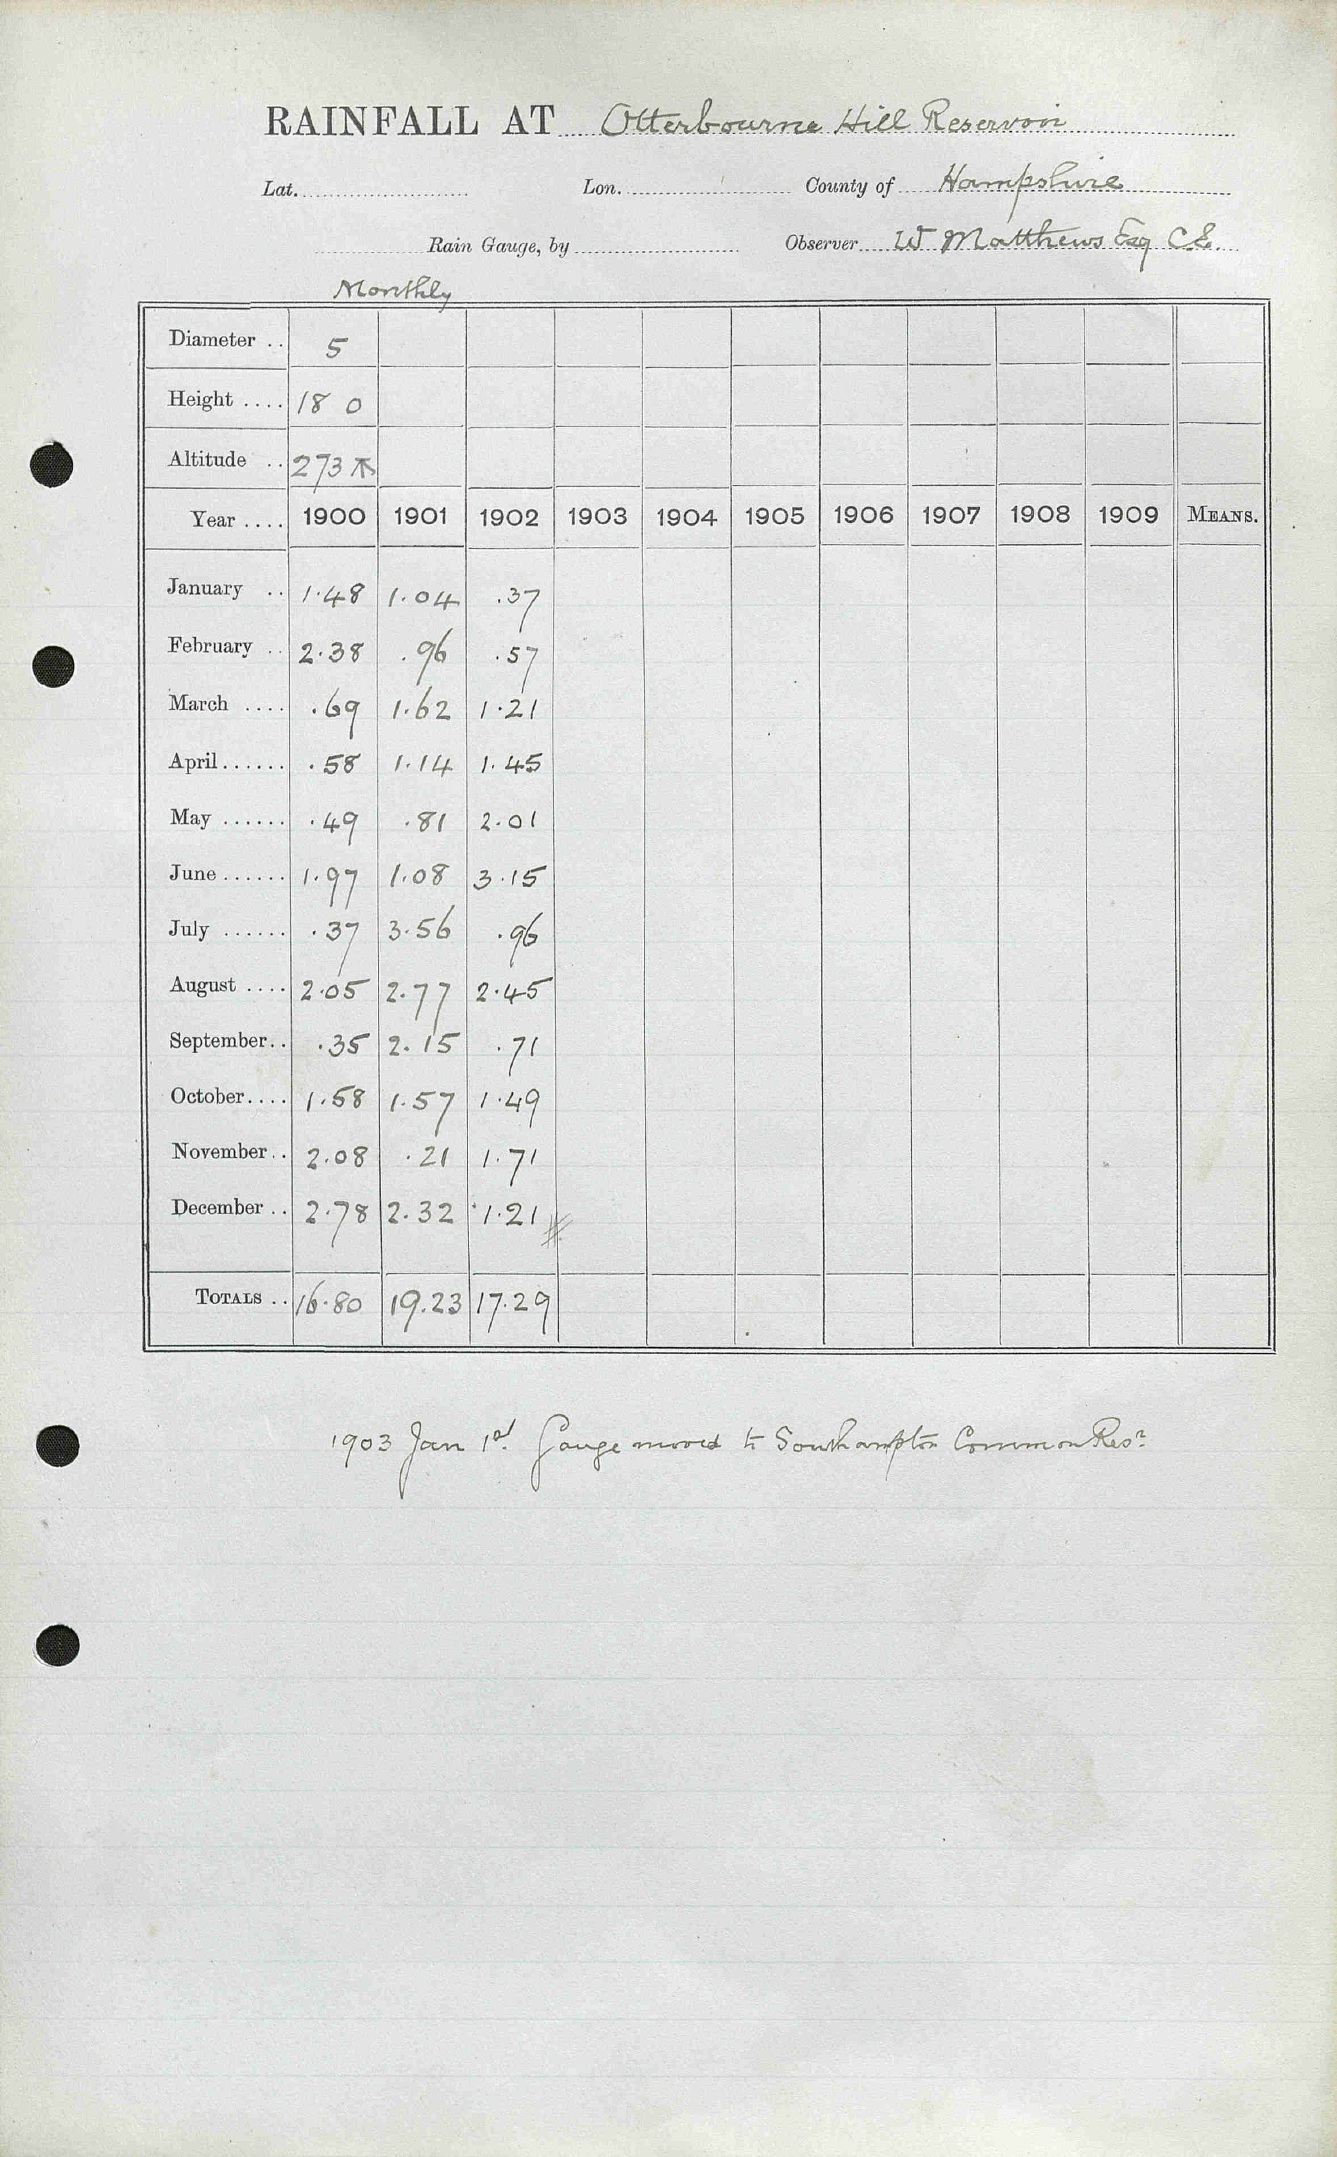 RAINFALL AT Otterbourne Hill Reservoir
Lat. Lon. County of Hampshire
Rain Gauge, by Observer W Matthews Esq C.E.
Monthly
Diameter .. 5
Height .... 18 0
Altitude .. 273
Year .... 1900 1901 1902 1903 1904 1905 1906 1907 1908 1909 MEANS.
January .. 1.48 1.04 .37
February .. 2.38 .96 .57
March .... .69 1.62 1.21
April...... .58 1.14 1.45
May ...... .49 .81 2.01
June...... 1.97 1.08 3.15
July ...... .37 3.56 .96
August .... 2.05 2.77 2.45
September.. .35 2.15 .71
October.... 1.58 1.57 1.49
November.. 2.08 .21 1.71
December .. 2.78 2.32 1.21
TOTALS .. 16.80 19.23 17.29
1903 Jan 1st. Gauge moved to Southampton Common Resr